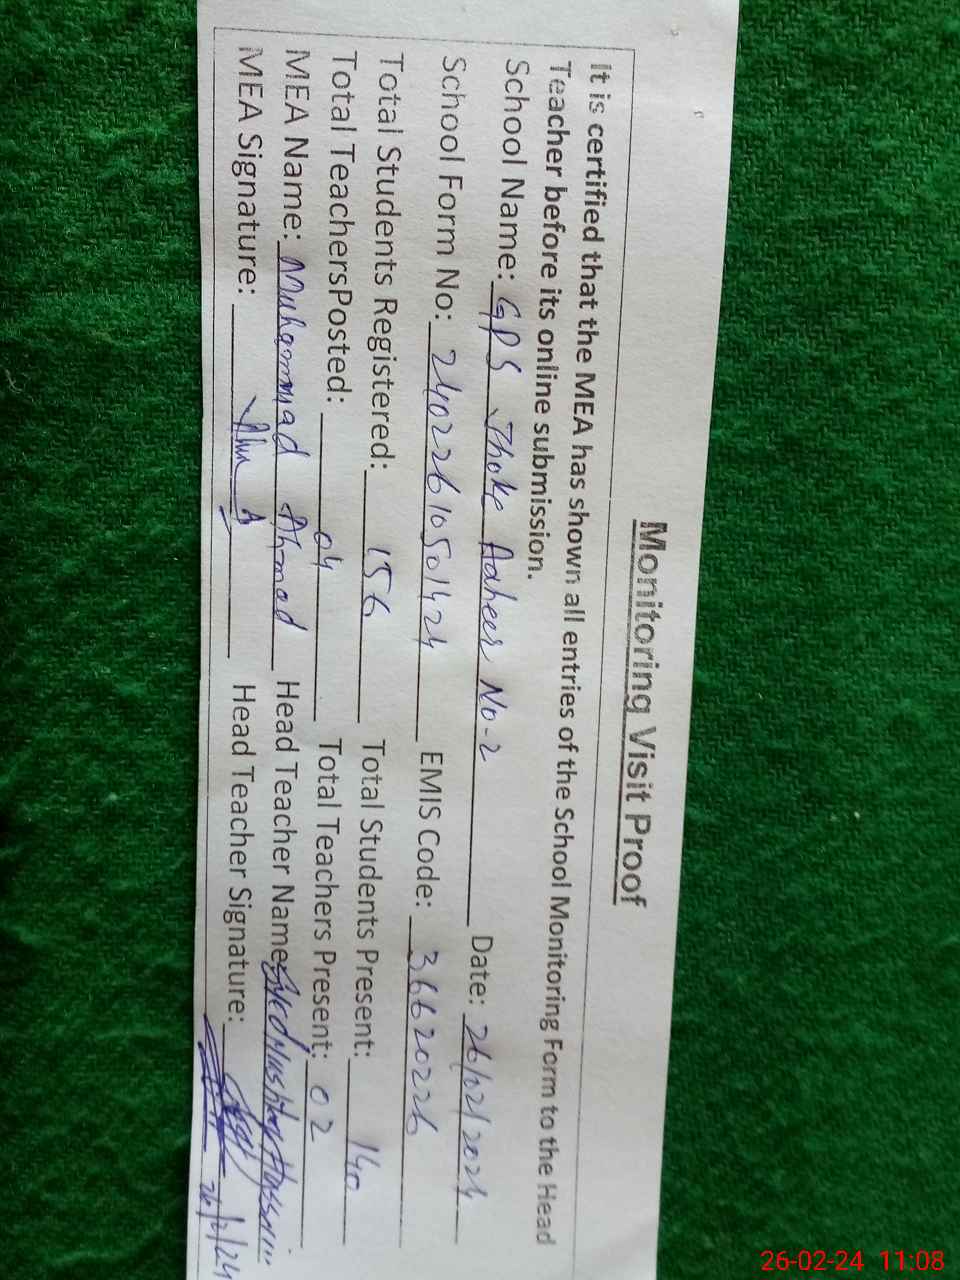 Monitoring Visit Proof
It is certified that the MEA has shown all entries of the School Monitoring Form to the Head
Teacher before its online submission.
School Name: GPS Jhoke Aaheer No-2 Date: 26/02/2024
School Form No: 24022610501424 EMIS Code: 36620226
Total Students Registered: 156 Total Students Present: 140
Total TeachersPosted: 04 Total Teachers Present: 02
MEA Name: Muhammad Ahmad Head Teacher Name: Syed Mushtaq Hassain
MEA Signature: Head Teacher Signature: 26/2/24
26-02-24 11:08